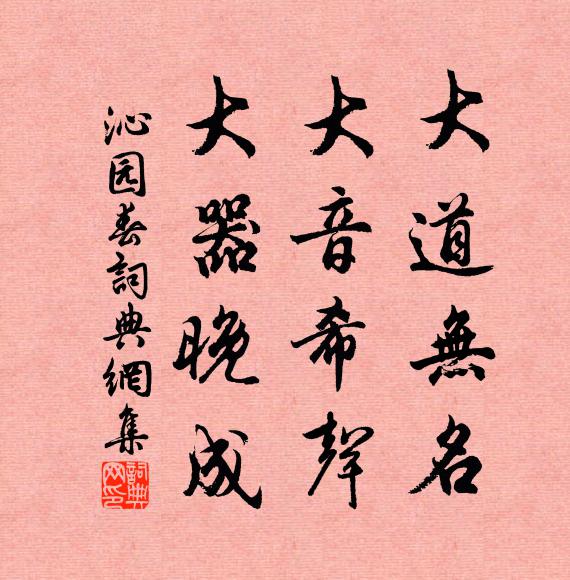 大道無名
大音希聲
大器晚成
沁园春詞典網集
詞典网印